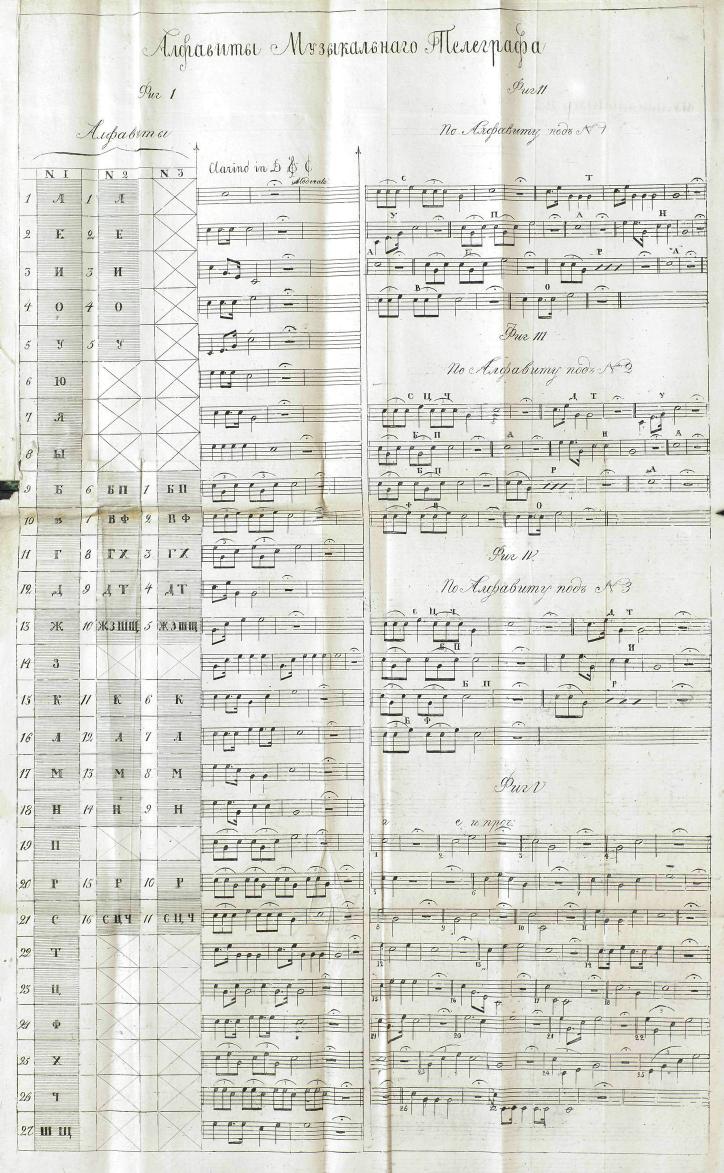 Алфавиты Музыкальнаго Телеграфа
Фиг I
Алфавиты
N 1 N 2 N 3
Clarino in D
Moderato
1 А 1 А
2 Е 2 Е
3 И 3 И
4 О 4 О
5 У 5 У
6 Ю
7 Я
8 Ы
9 Б 6 БП 1 БП
10 В 7 ВФ 2 ВФ
11 Г 8 ГХ 3 ГХ
12 Д 9 ДТ 4 ДТ
13 Ж 10 ЖЗШЩ 5 ЖЗШЩ
14 З
15 К 11 К 6 К
16 Л 12 Л 7 Л
17 М 13 М 8 М
18 Н 14 Н 9 Н
19 П
20 Р 15 Р 10 Р
21 С 16 СЦЧ 11 СЦЧ
22 Т
23 Ц
24 Ф
25 Х
26 Ч
27 Ш Щ
Фиг II
По Алфавиту подъ N 1
С Т
У П А Н
А Б Р А
В О
Фиг III
По Алфавиту подъ N 2
С Ц Ч Д Т У
Б П А Н А
Б П Р А
Ф В О
Фиг IV
По Алфавиту подъ N 3
С Ц Ч Д Т
Б П Н
Б П Р
В Ф
Фиг V
и проч:
1 2 3 4
5 6 7
8 9 10 11
12 13 14
15 16 17 18
19 20 21 22
23 24 25
26 27